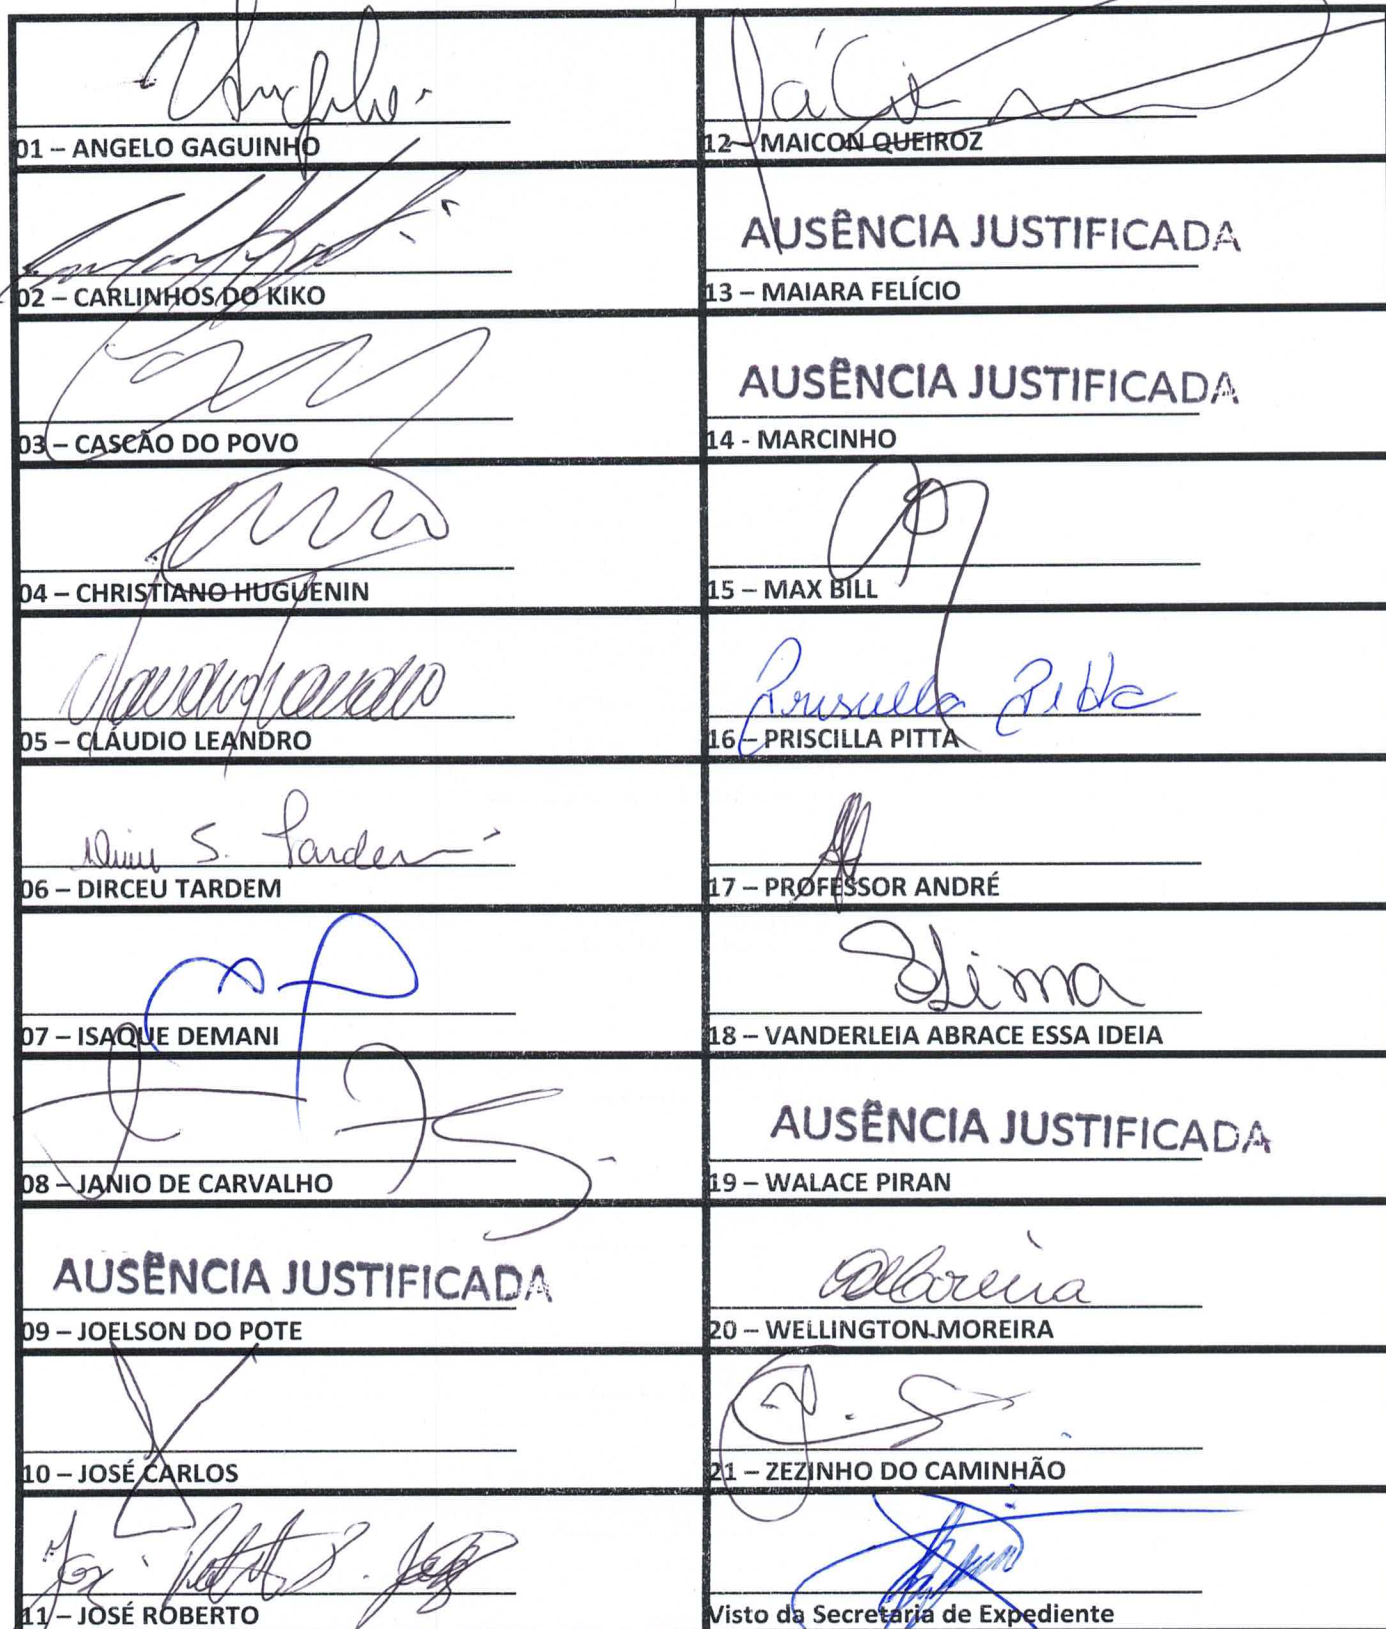 01 – ANGELO GAGUINHO
02 – CARLINHOS DO KIKO
03 – CASCÃO DO POVO
04 – CHRISTIANO HUGUENIN
05 – CLÁUDIO LEANDRO
S. Tardem
06 – DIRCEU TARDEM
07 – ISAQUE DEMANI
08 – JANIO DE CARVALHO
AUSÊNCIA JUSTIFICADA
09 – JOELSON DO POTE
10 – JOSÉ CARLOS
José Roberto
11 – JOSÉ ROBERTO
12 – MAICON QUEIROZ
AUSÊNCIA JUSTIFICADA
13 – MAIARA FELÍCIO
AUSÊNCIA JUSTIFICADA
14 - MARCINHO
15 – MAX BILL
Priscilla Pitta
16 – PRISCILLA PITTA
17 – PROFESSOR ANDRÉ
Lima
18 – VANDERLEIA ABRACE ESSA IDEIA
AUSÊNCIA JUSTIFICADA
19 – WALACE PIRAN
20 – WELLINGTON MOREIRA
21 – ZEZINHO DO CAMINHÃO
Visto da Secretaria de Expediente